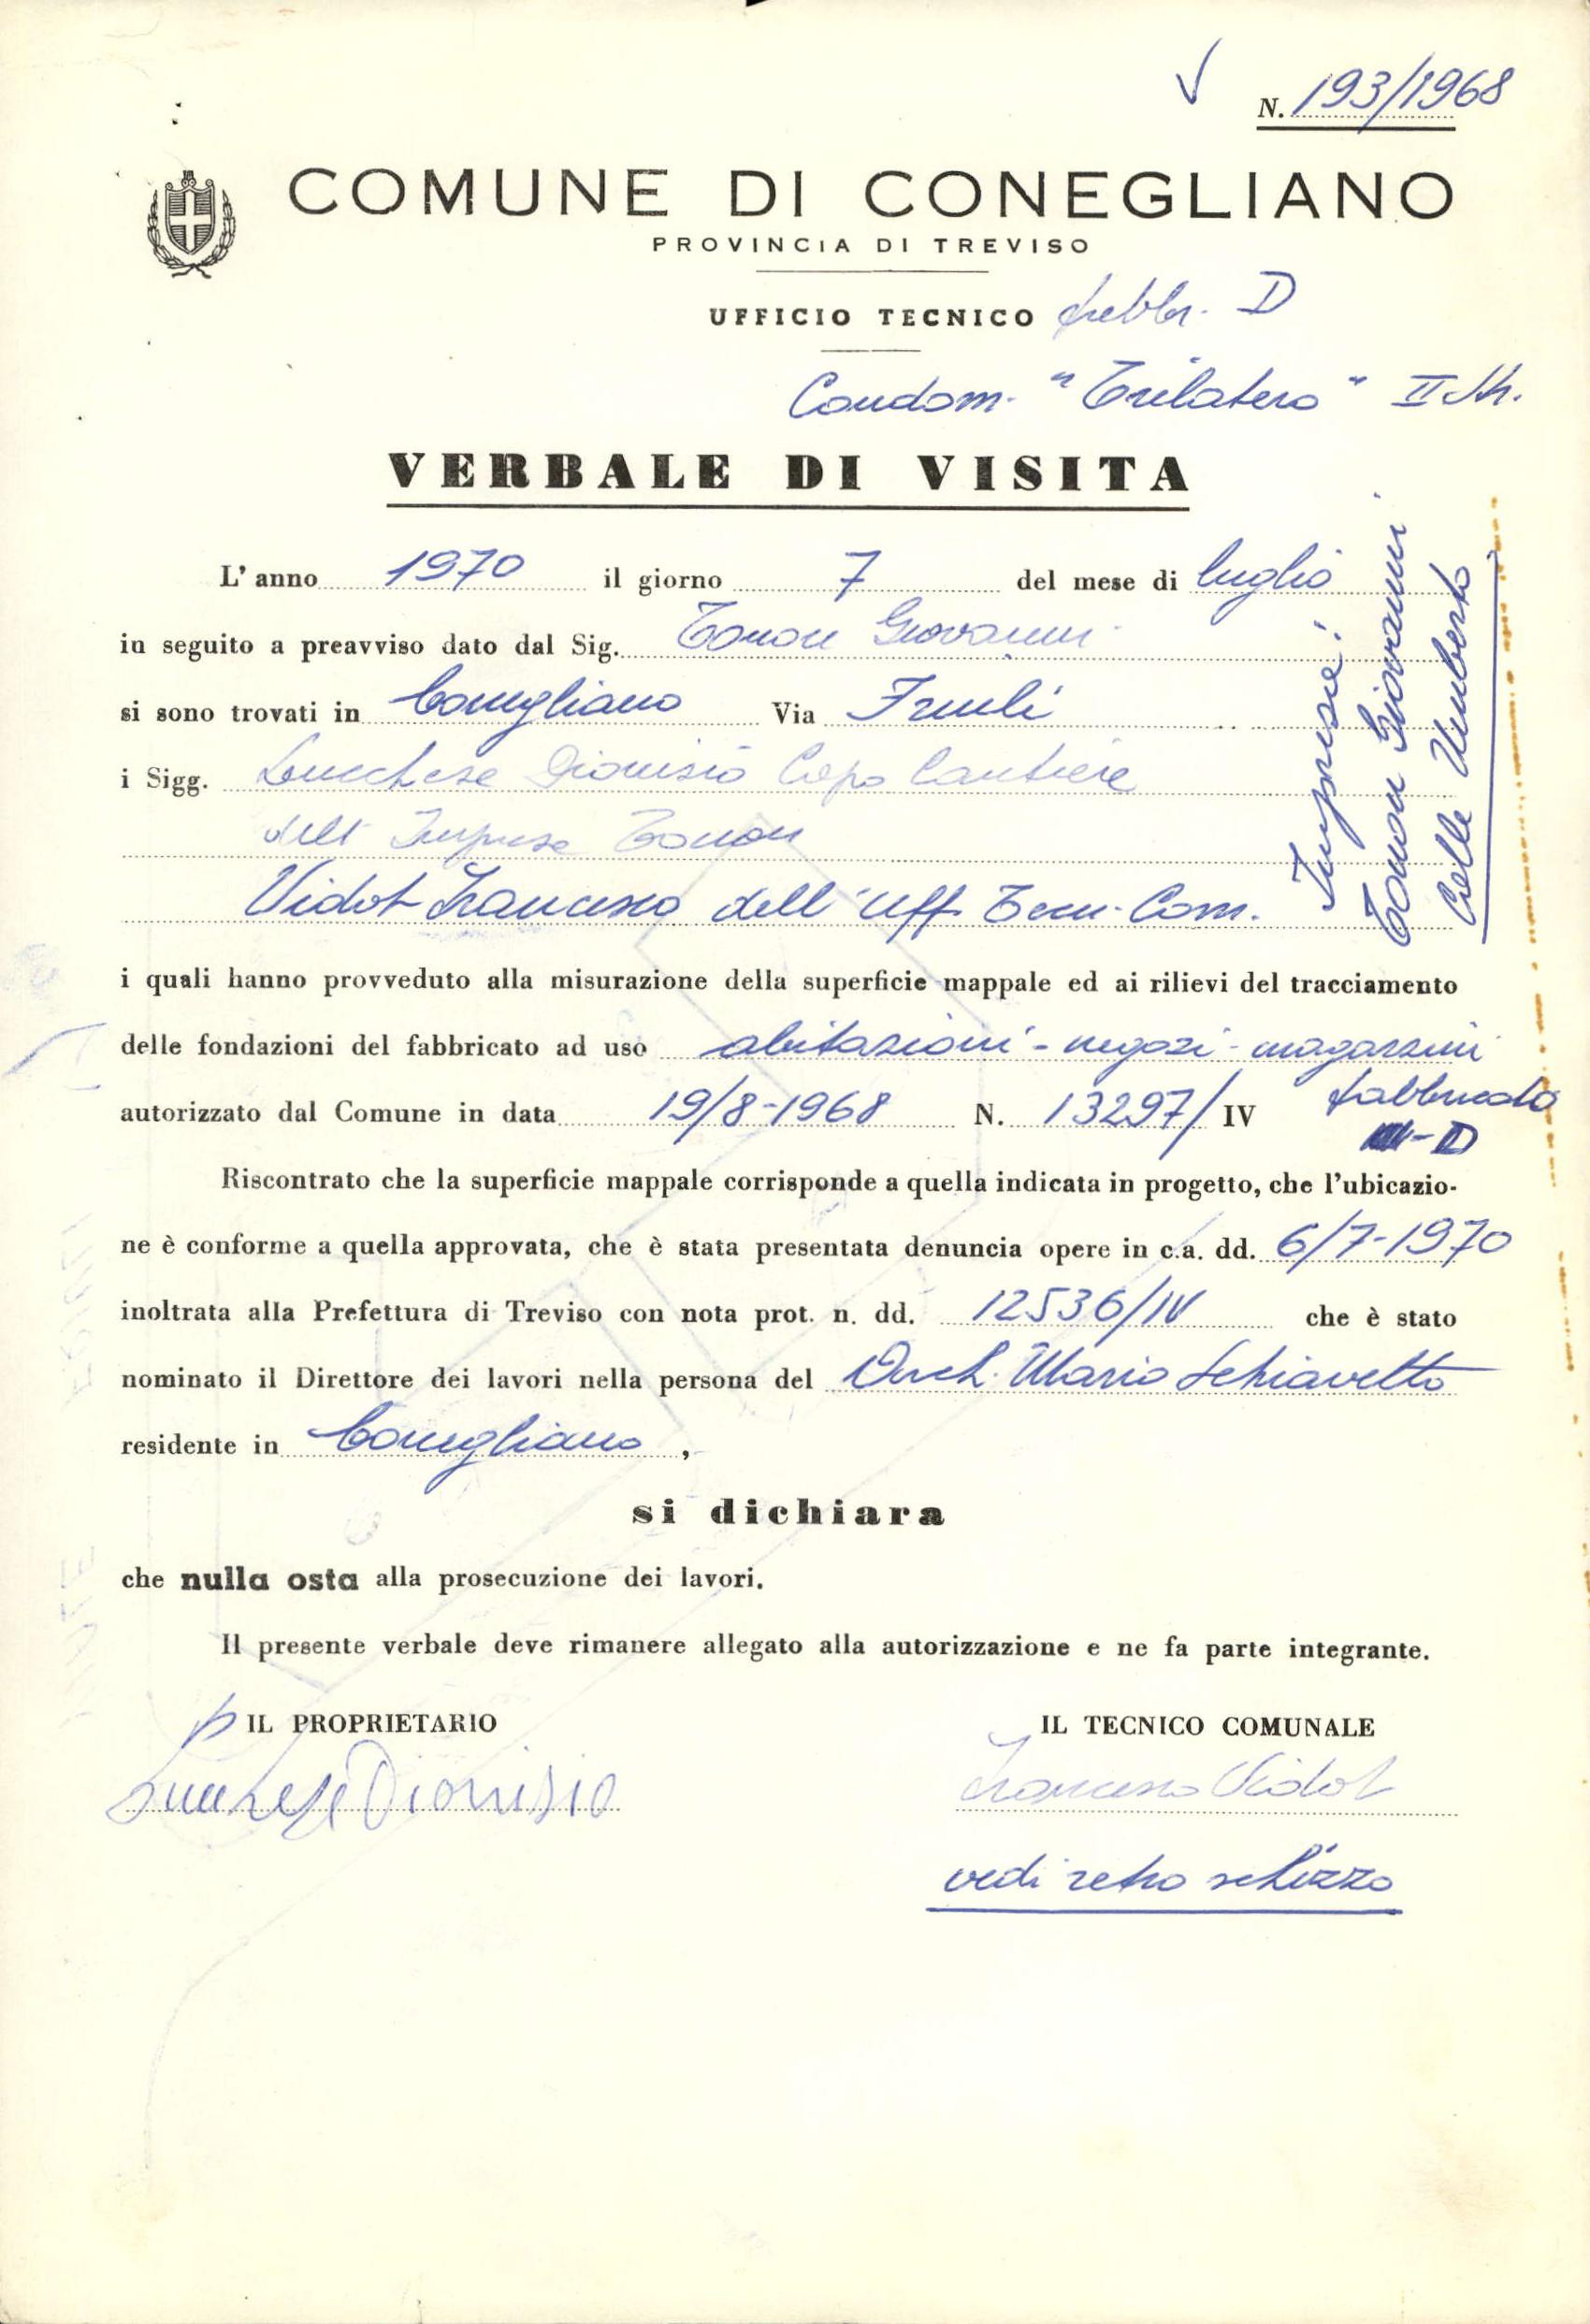 N. 193/1968
COMUNE DI CONEGLIANO
PROVINCIA DI TREVISO
UFFICIO TECNICO fabbr. D
Condom. "Trilatero" II
VERBALE DI VISITA
L'anno 1970 il giorno 7 del mese di luglio
in seguito a preavviso dato dal Sig. Tonon Giovanni
si sono trovati in Conegliano Via Friuli
i Sigg. Lucchese Dionisio Capo Cantiere
dell'Impresa Tonon
Vidot Francesco dell'Uff. Tecn. Com.
Imprese:
Tonon Giovanni
Celle Umberto
i quali hanno provveduto alla misurazione della superficie mappale ed ai rilievi del tracciamento
delle fondazioni del fabbricato ad uso abitazioni - negozi - magazzini
autorizzato dal Comune in data 19/8-1968 N. 13297/ IV fabbricato
- D
Riscontrato che la superficie mappale corrisponde a quella indicata in progetto, che l'ubicazio-
ne è conforme a quella approvata, che è stata presentata denuncia opere in c.a. dd. 6/7-1970
inoltrata alla Prefettura di Treviso con nota prot. n. dd. 12536/IV che è stato
nominato il Direttore dei lavori nella persona del Arch. Mario Schiavetto
residente in Conegliano ,
si dichiara
che nulla osta alla prosecuzione dei lavori.
Il presente verbale deve rimanere allegato alla autorizzazione e ne fa parte integrante.
p IL PROPRIETARIO
Lucchese Dionisio
IL TECNICO COMUNALE
Francesco Vidot
vedi retro schizzo